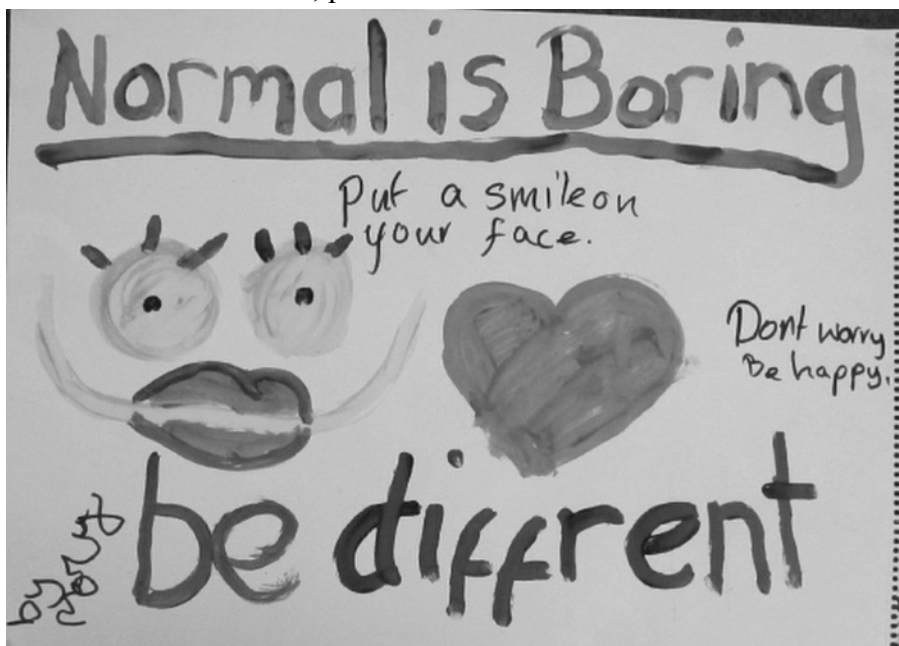 Normal is Boring
Put a smile on
your face.
Dont worry
Be happy.
be diffrent
by